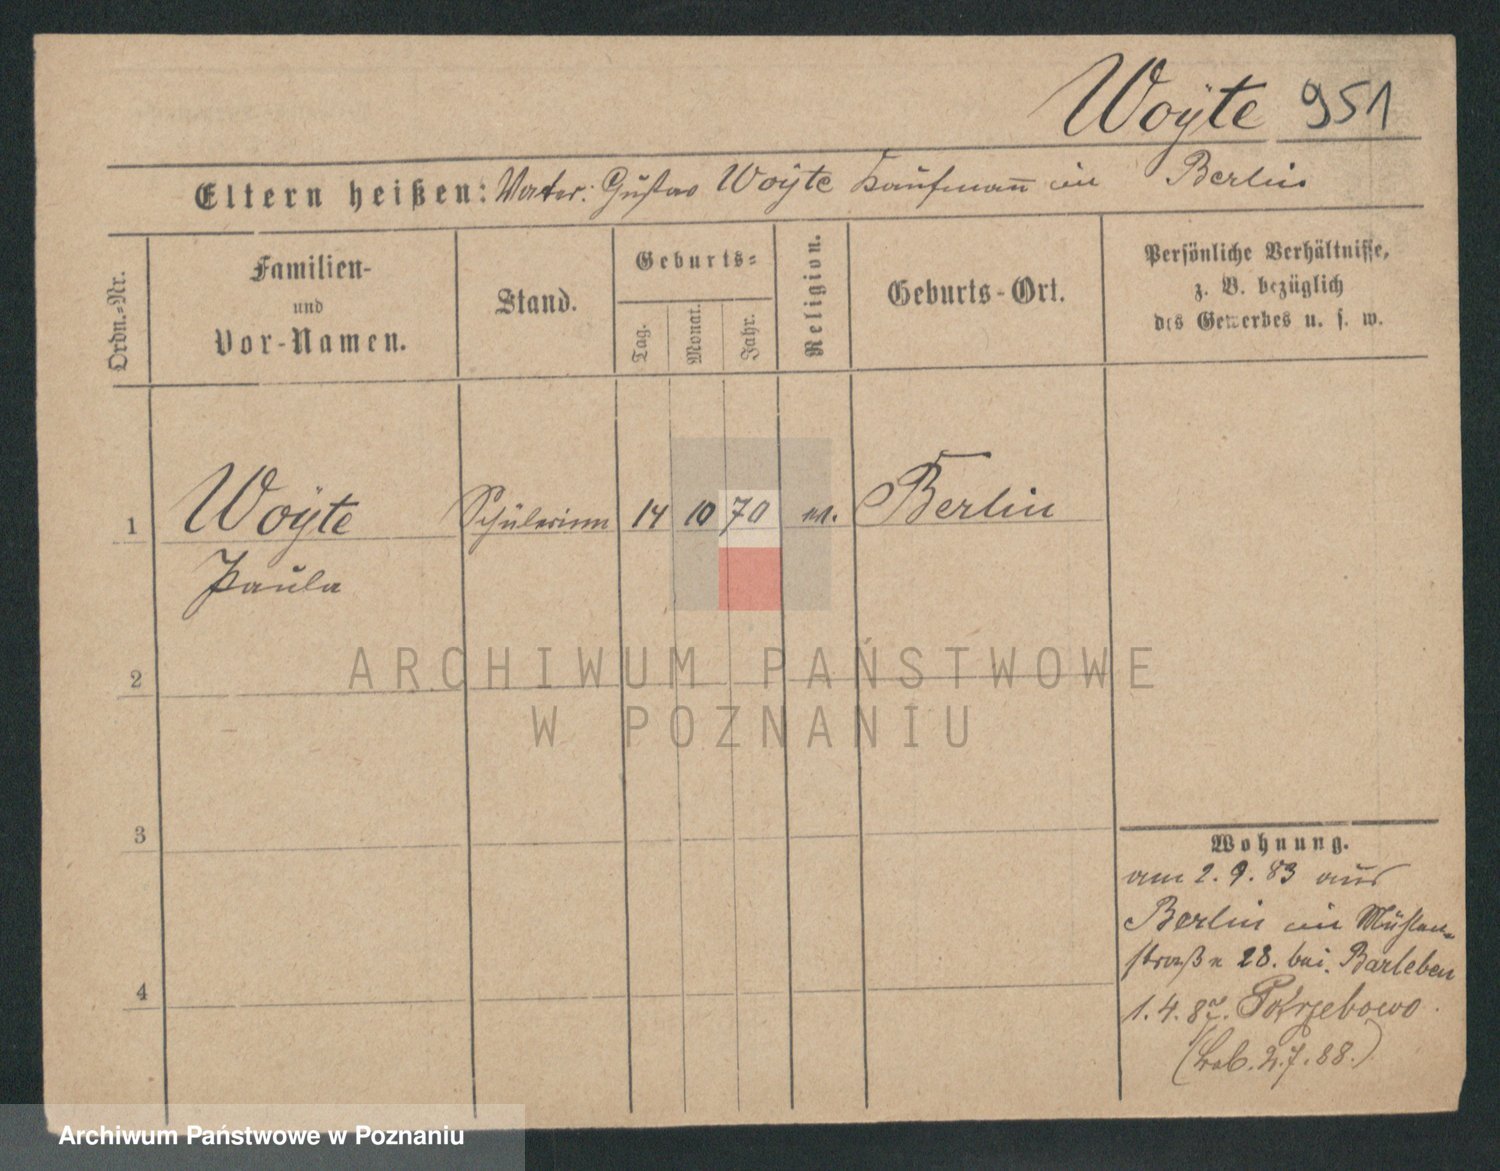 Woÿte 951
Eltern heißen: Vater: Gustav Woÿte Kaufmann in Berlin
Ordn.-Nr.
Familien-
und
Vor-Namen.
Stand.
Geburts-
Tag.
Monat.
Jahr.
Religion.
Geburts-Ort.
Persönliche Verhältnisse,
z. B. bezüglich
des Gewerbes u. s. w.
1 Woÿte Schülerinn 14 10 70 ev. Berlin
Paula
ARCHIWUM PAŃSTWOWE
W POZNANIU
2
3
4
Wohnung.
am 2. 9. 83 aus
Berlin in Mühlen-
straße 28. bei Barleben
1. 4. Pokrzebowo
2.7.88.)
Archiwum Państwowe w Poznaniu